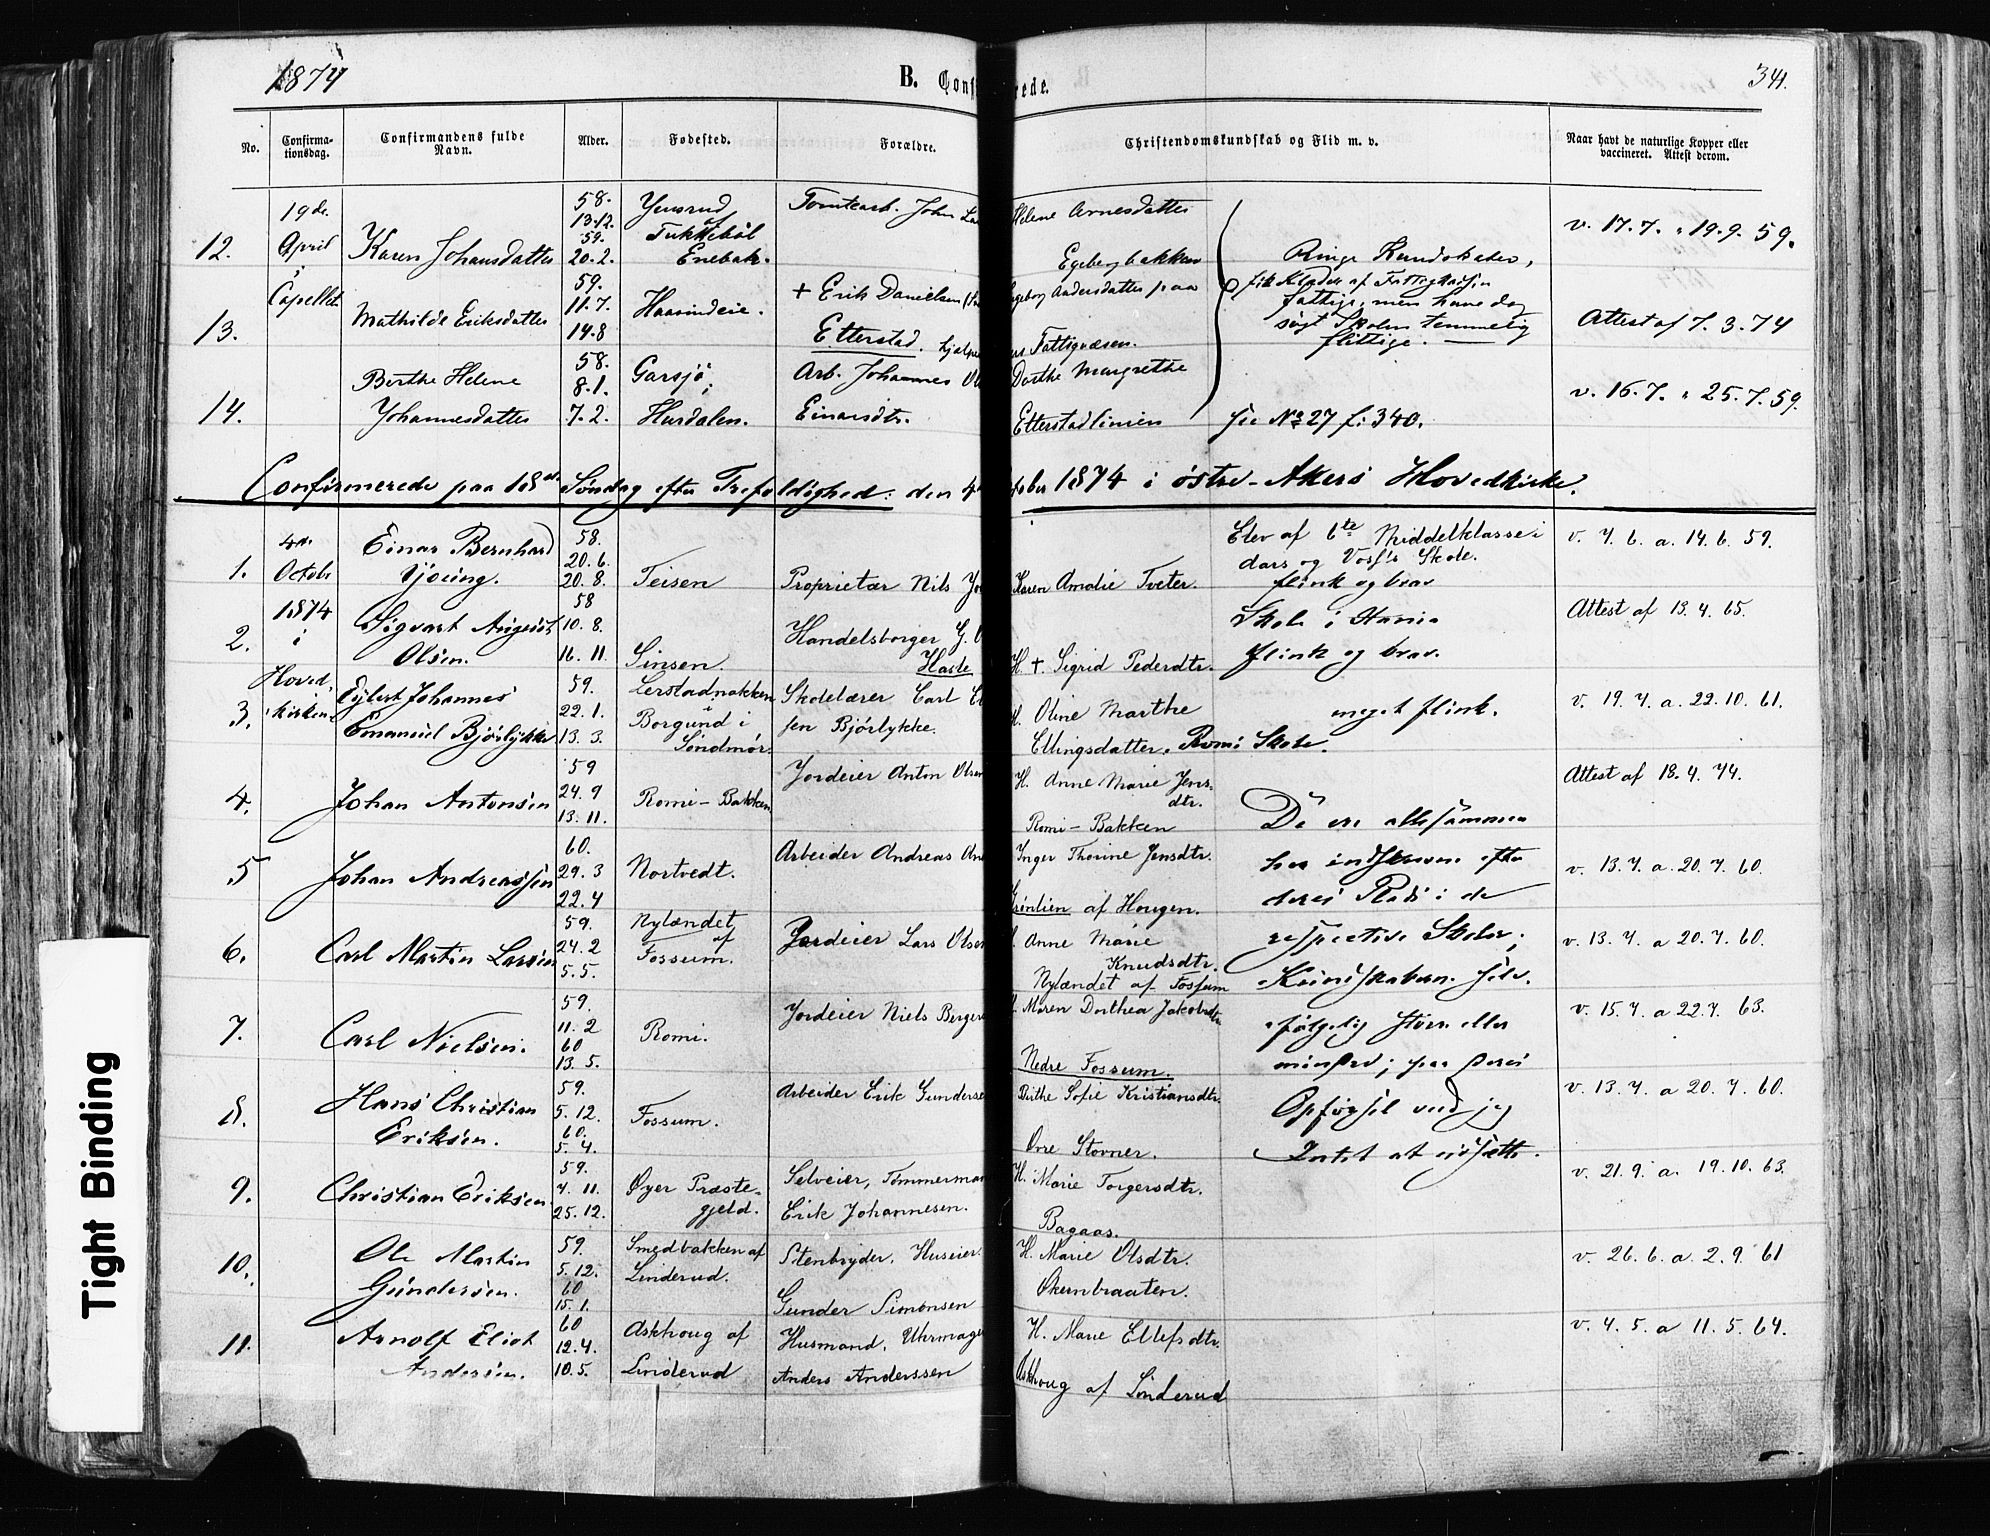 1874
B. Conf rede.
341.
No.
Confirma-
tionsdag.
Confirmandens fulde
Navn.
Alder.
Fødested.
Forældre.
Christendomskundskab og Flid m. v.
Naar havt de naturlige Kopper eller
vaccineret. Attest derom.
12.
19de
April
i
Capellet
Karen Johansdatter
58.
13.12.
59.
20.2.
af
Enebak.
Tomtearb. John
Helene Arnesdatter
Egebergbakken
Ringe Kundskaber,
v. 17.7. 19.9. 59.
13.
Mathilde Eriksdatter
59.
11.7.
14.8
+ Erik Danielsen
Andersdatter paa
Etterstad.
Fattigvæsen.
fattige, men have dog
søgt Skolen temmelig
flittige.
Attest af 7.3.74
14.
Berthe Helene
Johannesdatter
58.
8.1.
7.2.
Garsjø
i
Hurdalen.
Arb. Johannes
Einarsdtr.
Dorthe Margrethe
Etterstadlinien
see No 27 f: 340.
v. 16.7. 25.7.59.
Confirmerede paa 18de Søndag efter Trefoldighed: den 4 tober 1874 i Østre-Akers Hovedkirke.
1.
4de
Octobr
1874
i
Hoved-
kirken
Einar Bernhard
58.
20.6.
20.8.
Teisen
Proprietær Nils
Karen Amalie Tveter.
Elev af 6te Middelklasse i
dars og Voss's Skole.
flink og brav
v. 7.6. a. 14.6. 59.
2.
Sigvart August
Olsen.
58
10.8.
16.11.
Sinsen.
Handelsborger G.
Hasle
H. + Sigrid Pedersdtr.
Skole i
flink og brav.
Attest af 13.4.65.
3.
Eylert Johannes
Emanuel Bjørlykke
59.
22.1.
13.3.
Lerstadnakken
i
Borgund i
Søndmør.
Skolelærer Carl
sen Bjørlykke.
H. Oline Marthe
Ellingsdatter. Romi Skole.
meget flink.
v. 19.7. a. 22.10. 61.
4.
Johan Antonsen
59
24.9
13.11.
Romi-Bakken
Jordeier Anton Olsen
H. Anne Marie Jens-
dtr.
Romi-Bakken
De ere allesammen
Attest af 18.4.74.
5
Johan Andreassen
60.
29.3
22.4
Nortvedt.
Arbeider Andreas
Inger Thorine Jensdtr.
Grønlien af Hougen.
her indskrevne efter
deres Plads i de
v. 13.7. a. 20.7. 60.
6.
Carl Martin Larsen
59.
24.2
5.5.
Nylændet
af
Fossum.
Jordeier Lars Olsen
Anne Marie
Knudsdtr.
Nylændet af Fossum
respective Skoler;
Kundskaben selv-
v. 13.7. a 20.7. 60.
7.
Carl Nielsen.
59.
11.2
60
13.5.
Romi.
Jordeier Niels
Maren Dorthea Jakobsdtr
Nedre Fossum.
følgelig større eller
mindre; paa deres
v. 15.7. a 22.7. 63.
8.
Hans Christian
Eriksen.
59.
5.12.
60.
5.4.
Fossum.
Arbeider Erik Gunderse
Birthe Sofie Kristiansdtr.
Øvre Stovner.
Opførsel ved jeg
Intet at udsætte.
v. 13.7. a 20.7. 60.
9.
Christian Eriksen
59.
7.11.
25.12.
Øyer Præste-
gjeld.
Selveier, Tømmerman
Erik Johannesen.
H. Marie Torgersdtr.
Bagaas.
v. 21.9. a. 19.10. 63.
10.
Ole Martin
Gundersen.
59.
5.12.
60
15.1.
Smedbakken af
Linderud.
Stenbryder, Huseier
Gunder Simonsen
H. Marie Olsdtr.
Økernbraaten.
v. 26.6. a. 2.9. 61
11.
Arnolf Eliot
Andersen.
60
12.4.
10.5.
Askhoug af
Linderud
Husmand, Uhrmager
Anders Anderssen
H. Marie Ellefsdtr.
Askhoug af Linderud
v. 4.5. a 11.5. 64.
Tight Binding